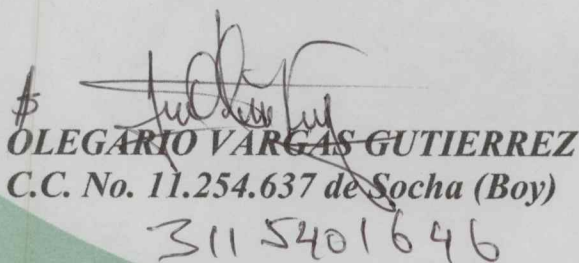 OLEGARIO VARGAS GUTIERREZ
C.C. No. 11.254.637 de Socha (Boy)
3115401646